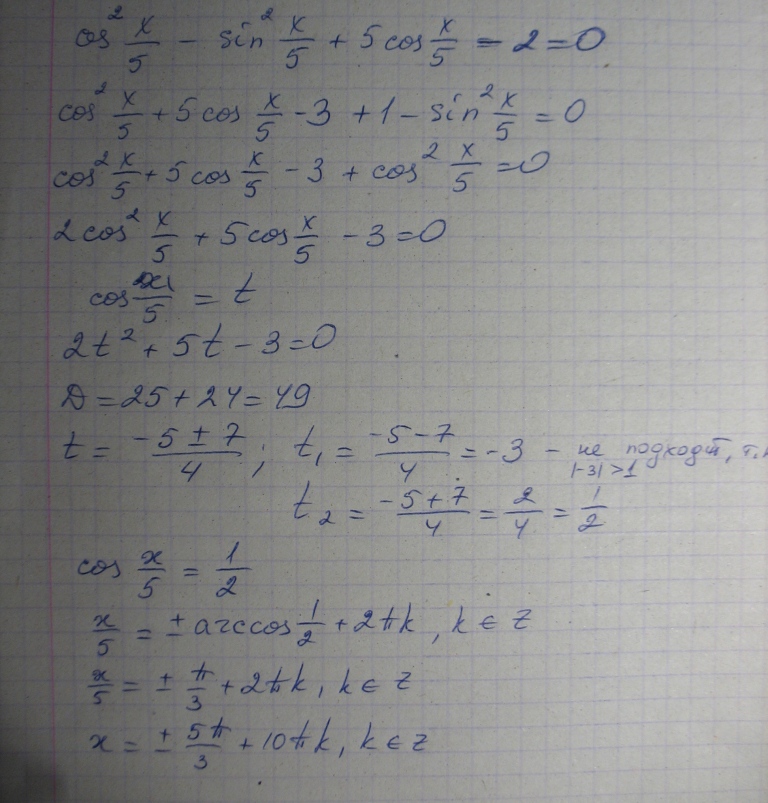 cos² x/5 - sin² x/5 + 5 cos x/5 - 2 = 0
cos² x/5 + 5 cos x/5 - 3 + 1 - sin² x/5 = 0
cos² x/5 + 5 cos x/5 - 3 + cos² x/5 = 0
2 cos² x/5 + 5 cos x/5 - 3 = 0
cos x/5 = t
2t² + 5t - 3 = 0
D = 25 + 24 = 49
t = (-5 ± 7)/4 ; t₁ = (-5 - 7)/4 = -3 - не подходит, т.к
|-3| > 1
t₂ = (-5 + 7)/4 = 2/4 = 1/2
cos x/5 = 1/2
x/5 = ± arccos 1/2 + 2πk, k ∈ z
x/5 = ± π/3 + 2πk, k ∈ z
x = ± 5π/3 + 10πk, k ∈ z